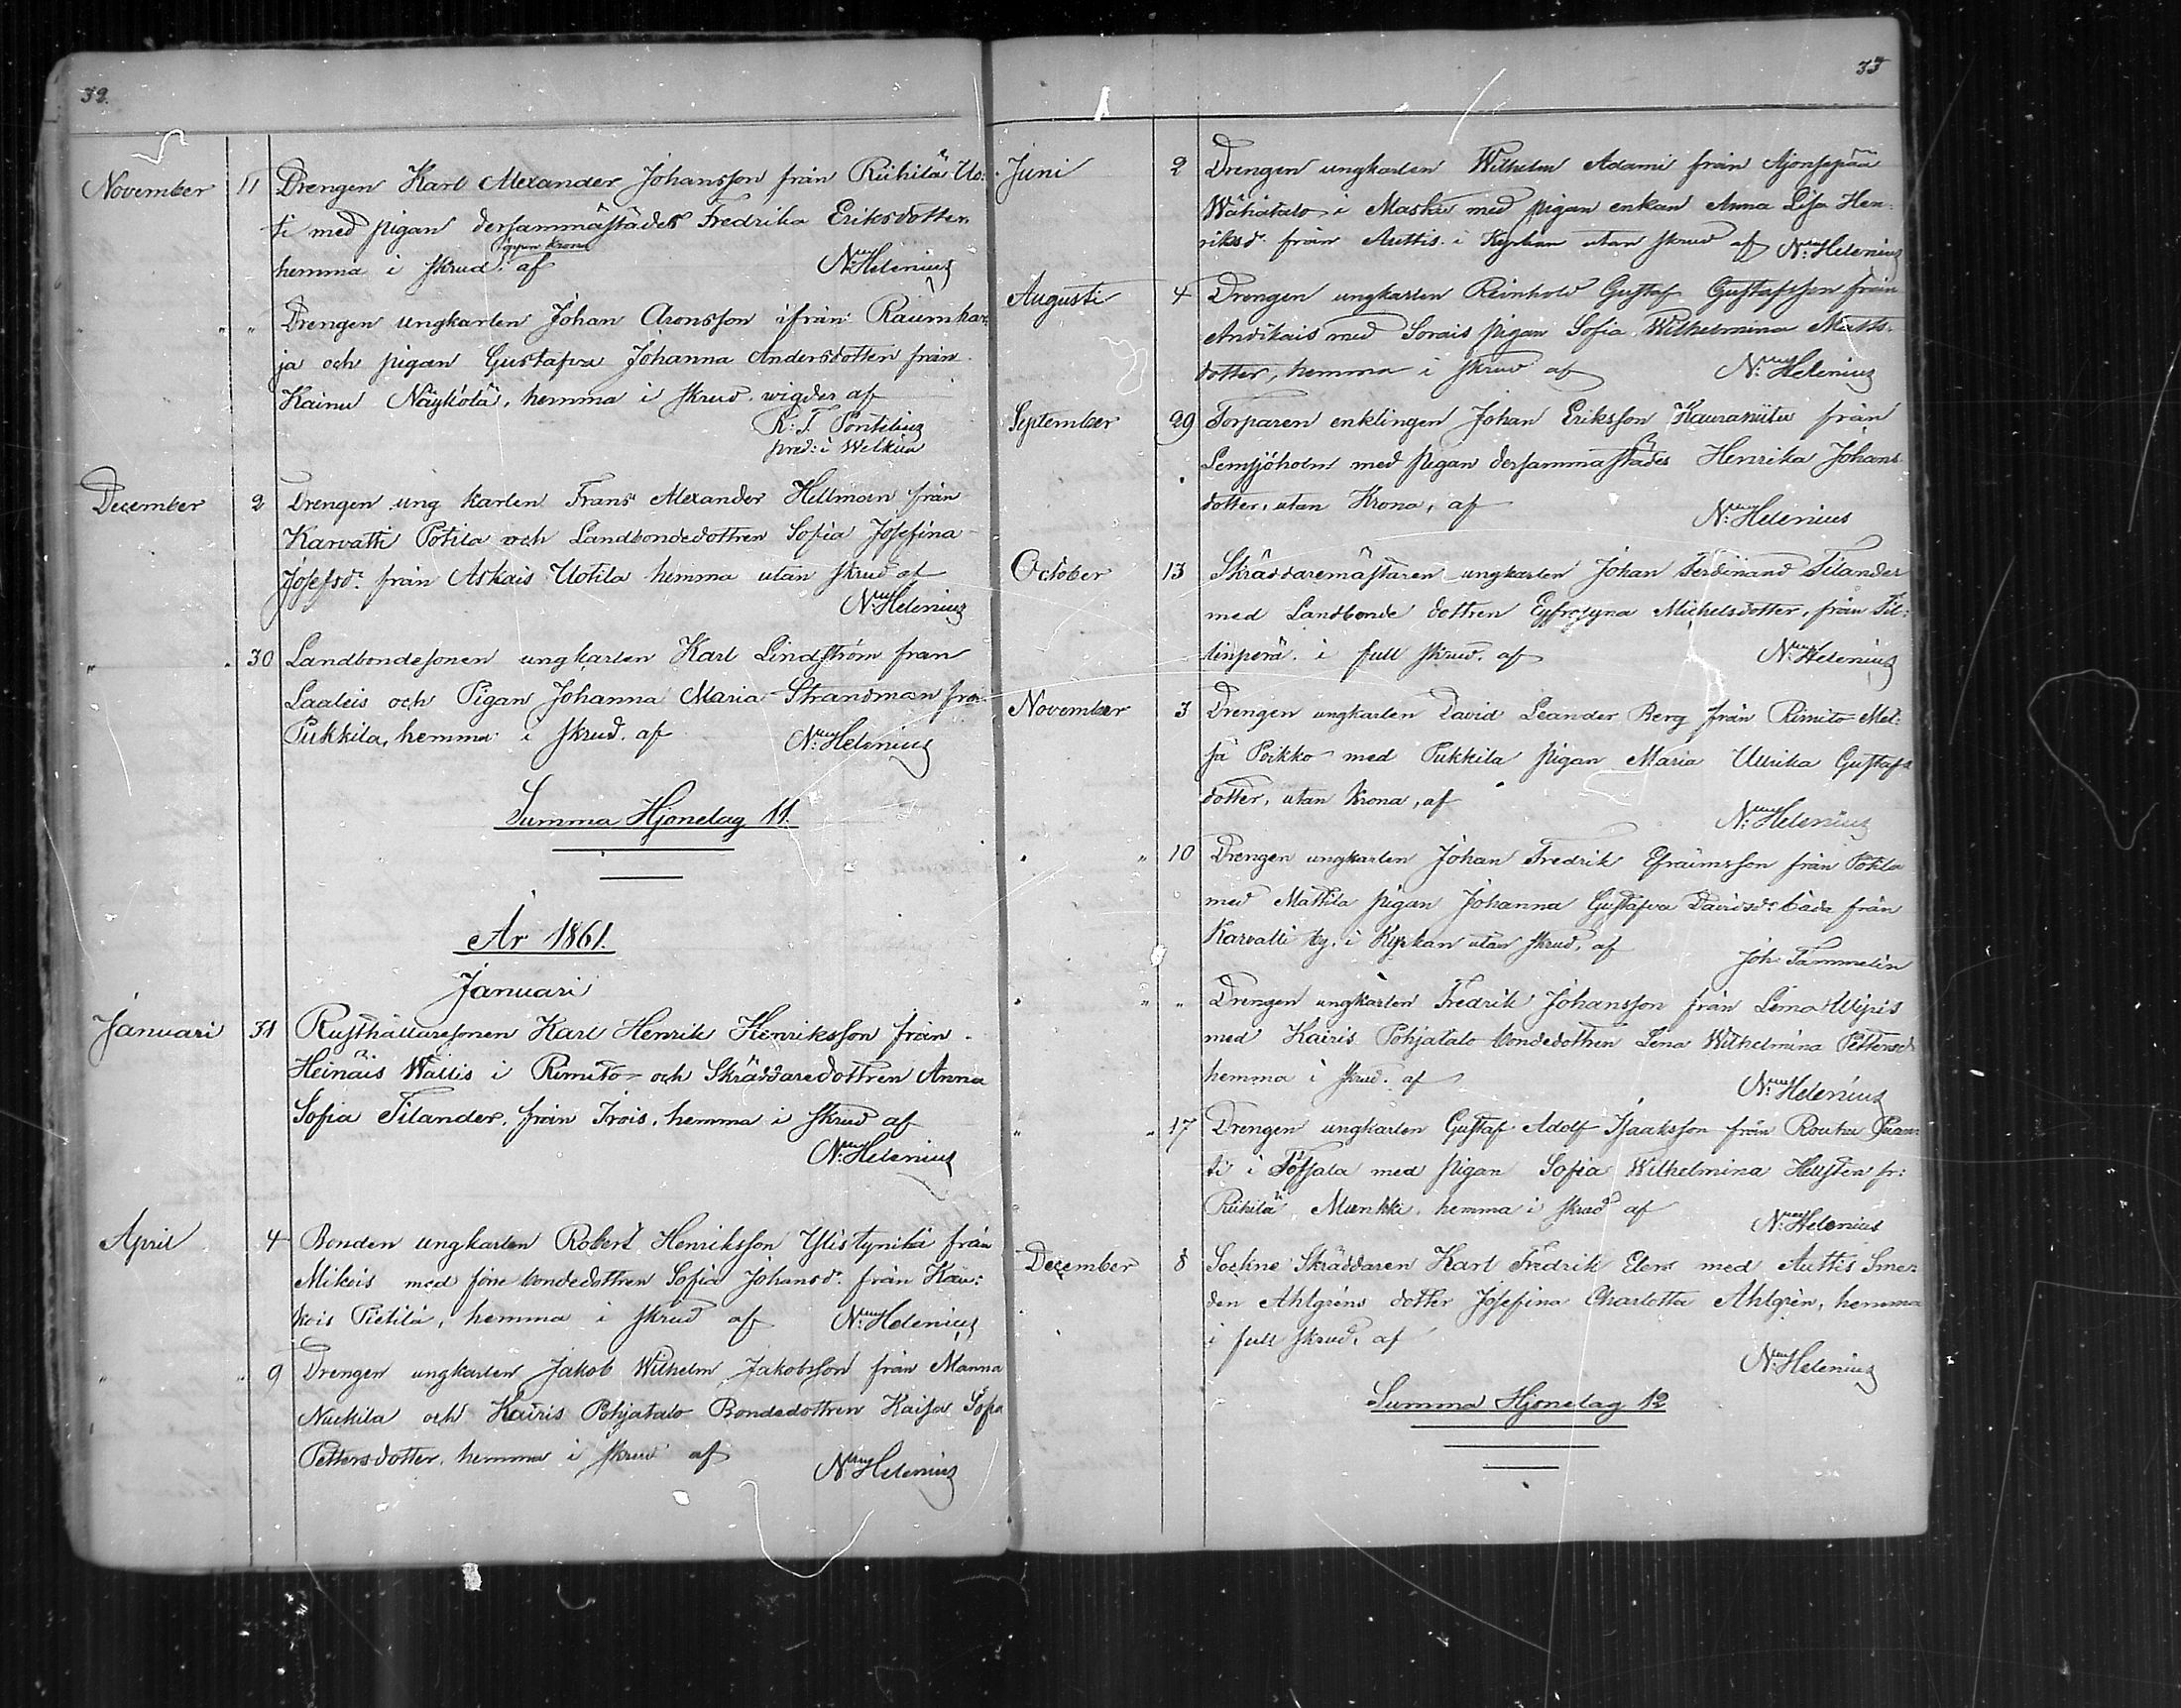 32.
November 11 Drengen Karl Alexander Johansson från Riihilä Uo:
ti med pigan dersammastädes Fredrika Eriksdotter
öppen krona
hemma i skrud, af N:us Helenius
" " " Drengen ungkarlen Johan Aronsson ifrån Raumkar:
ja och pigan Gustafva Johanna Andersdotter från
Kainu Näykölä, hemma i skrud wigder af
R: F. Pontelius
pred: i Welkua
December 2 Drengen ung karlen Frans Alexander Hellman från
Karvatti Potila och Landbondedottren Sofia Josefina
Josefsd:r från Askais Uotila hemma utan skrud af
N:us Helenius
" " 30 Landbondesonen ungkarlen Karl Lindström från
Laaleis och Pigan Johanna Maria Strandman från
Pukkila, hemma i skrud. af N:us Helenius
Summa Hjonelag 11.
År 1861.
Januari
Januari 31 Rusthållaresonen Karl Henrik Henriksson från
Heinäis Wallis i Rimito och Skräddaredottren Anna
Sofia Tilander, från Irois, hemma i skrud af
N:us Helenius
April 4 Bonden ungkarlen Robert Henriksson Ylistynikä från
Mikois med förre bondedottren Sofia Johansd:r från Kau:
kois Pietilä, hemma i skrud af N:us Helenius
" " 9 Drengen ungkarlen Jakob Wilhelm Jakobsson från Manna
Nuikila och Kairis Pohjatalo Bondedottren Kaisa Sofia
Pettersdotter, hemma i skrud af N:us Helenius
33
Juni 2 Drengen ungkarlen Wilhelm Adami från Ajonpää
Wähätalo i Masku med pigan enkan Anna Lisa Hen
riksd:r från Auttis i Kyrkan utan skrud af N:us Helenius
Augusti 4 Drengen ungkarlen Reinhold Gustaf Gustafsson från
Andikais med Sorais pigan Sofia Wilhelmina Matts:
dotter, hemma i skrud af N:us Helenius
September 29 Torparen enklingen Johan Eriksson Kauraniitu från
Lemsjöholm med pigan dersammastädes Henrika Johans
dotter, utan Krona, af
N:us Helenius
October 13 Skräddaremästaren ungkarlen Johan Ferdinand Tilander
med Landbonde dottren Eyfrosyna Michelsdotter, från Til:
linperä. i full skrud. af N:us Helenius
November 3 Drengen ungkarlen David Leander Berg från Rimito Met:
sä Poikko med Pukkila pigan Maria Ulrika Gustafs
dotter, utan krona, af
N:us Helenius
" " 10 Drengen ungkarlen Johan Fredrik Efraimsson från Potila
med Mattila pigan Johanna Gustafva Davidsd:r båda från
Karvatti by. i Kyrkan utan skrud. af
Joh. Tammelin
" " " Drengen ungkarlen Fredrik Johansson från Lemo
med Kairis Pohjatalo bondedottren Lena Wilhelmina Pettersd:r
hemma i skrud. af N:us Helenius
" " 17 Drengen ungkarlen Gustaf Adolf Isaaksson från Routu
ti i Töfsala med pigan Sofia Wilhelmina Hellsten fr:
Riihilä Munkki hemma i skrud af
N:us Helenius
December 8 Sockne Skräddaren Karl Fredrik Elers med Auttis Sme:
den Ahlgréns dotter Josefina Charlotta Ahlgrén, hemma
i full skrud, af
N:us Helenius
Summa Hjonelag 12